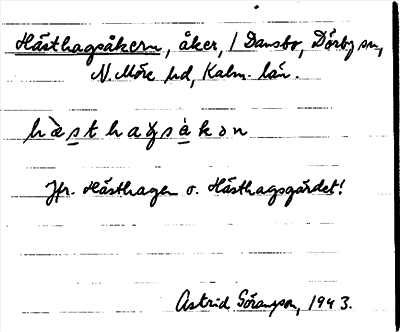 Hästhagsåkern, åker, / Dansbo, Dörby sn,
N. Möre hd, Kalm. län.
hæ̀sthaɣsàkon
Jfr. Hästhagen o. Hästhagsgärdet!
Astrid Göransson, 1943.